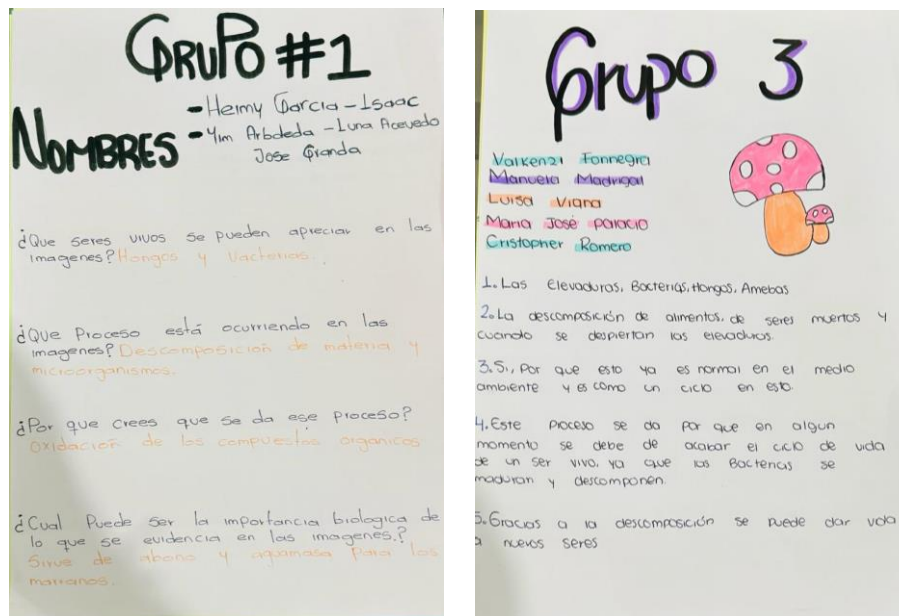 GRUPO #1
NOMBRES
- Heimy Garcia - Isaac
- Yim Arboleda - Luna Acevedo
Jose Granda
¿Que seres vivos se pueden apreciar en las
imagenes? Hongos y Vacterias.
¿Que Proceso está ocurriendo en las
imagenes? Descomposición de materia y
microorganismos.
¿Por que crees que se da ese proceso?
Oxidación de los compuestos organicos
¿Cual Puede ser la importancia biologica de
lo que se evidencia en las imagenes.?
Sirve de abono y aguamasa para los
marranos.
Grupo 3
Fonnegra
Manuela Madrigal
Luisa Viana
Maria José palacio
Cristopher Romero
1. Las elevaduras, Bacterias, Hongos, Amebas
2. La descomposición de alimentos, de seres muertos y
cuando se despiertan las elevaduras.
3. Si, Por que esto ya es normal en el medio
ambiente y es como un ciclo en esto.
4. Este proceso se da por que en algun
momento se debe de acabar el ciclo de vida
de un ser vivo, ya que las Bacterias se
maduran y descomponen.
5. Gracias a la descomposición se puede dar vida
a nuevos seres